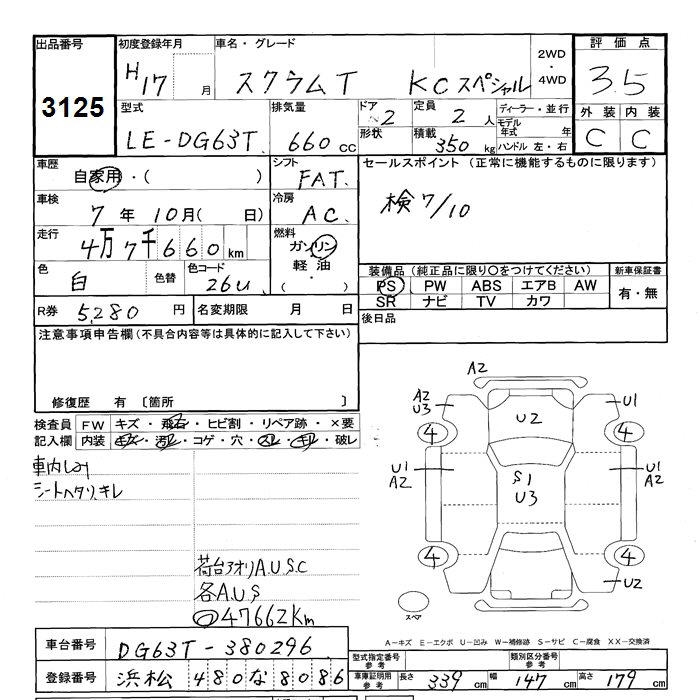 出品番号 初度登録年月 車名・グレード 2WD・4WD 評価点
3125 H17 月 スクラムT KCスペシャル 3.5
型式 排気量 ドア 2 定員 2 人 ディーラー・並行 外装 内装
LE-DG63T 660 cc 形状 積載 350 kg モデル年式 年 ハンドル 左・右 C C
車歴 自家用・( ) シフト FAT セールスポイント (正常に機能するものに限ります)
車検 7 年 10 月( 日) 冷房 AC 検7/10
走行 4万7千660 km 燃料 ガソリン 軽油 ・( )
色 白 色替 色コード 26U 装備品 (純正品に限り○をつけてください) 新車保証書
PS PW ABS エアB AW 有・無
SR ナビ TV カワ
R券 5,280 円 名変期限 月 日 後日品
注意事項申告欄 (不具合内容等は具体的に記入して下さい)
修復歴 有 〔箇所 〕
検査員 FW キズ・飛石・ヒビ割・リペア跡・×要
記入欄 内装 キズ・汚レ・コゲ・穴・スレ・キレ・破レ
車内しみ
シートヘタリ、キレ
荷台アオリA.U.S.C
各A.U.S
47662Km
A2
A2 U3 U2 U1
4 4
U1 A2 S1 U3 U1 A2
4 4
U2
スペア
A-キズ E-エクボ U-凹み W-補修跡 S-サビ C-腐食 XX-交換済
車台番号 DG63T-380296 型式指定番号 参考 類別区分番号 参考
登録番号 浜松 480 な 8086 車庫証明用 参考 長さ 339 cm 幅 147 cm 高さ 179 cm